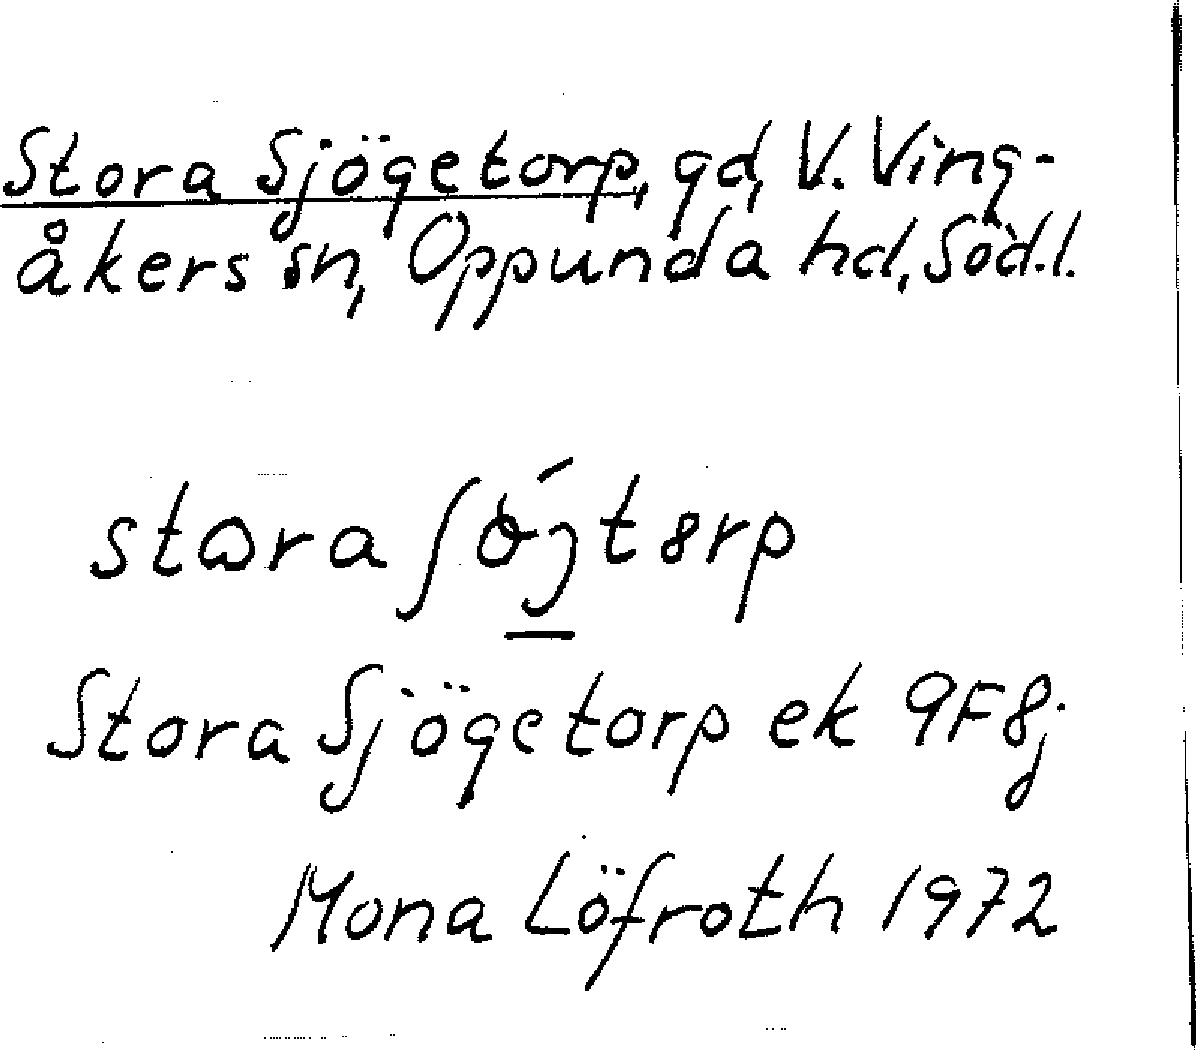 Stora Sjögetorp, gd, V. Ving-
åkers sn, Oppunda hd, Södl.
Stora Sjögetorp ek 9F8j
Mona Löfroth 1972